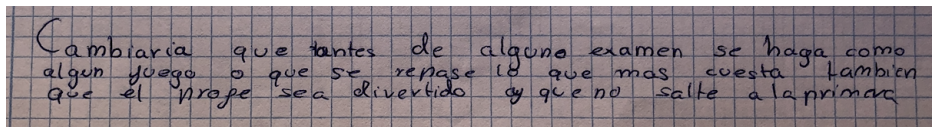 Cambiaria que antes de alguno examen se haga como
algun juego o que se repase lo que mas cuesta tambien
que el profe sea divertido y que no salte a la primera